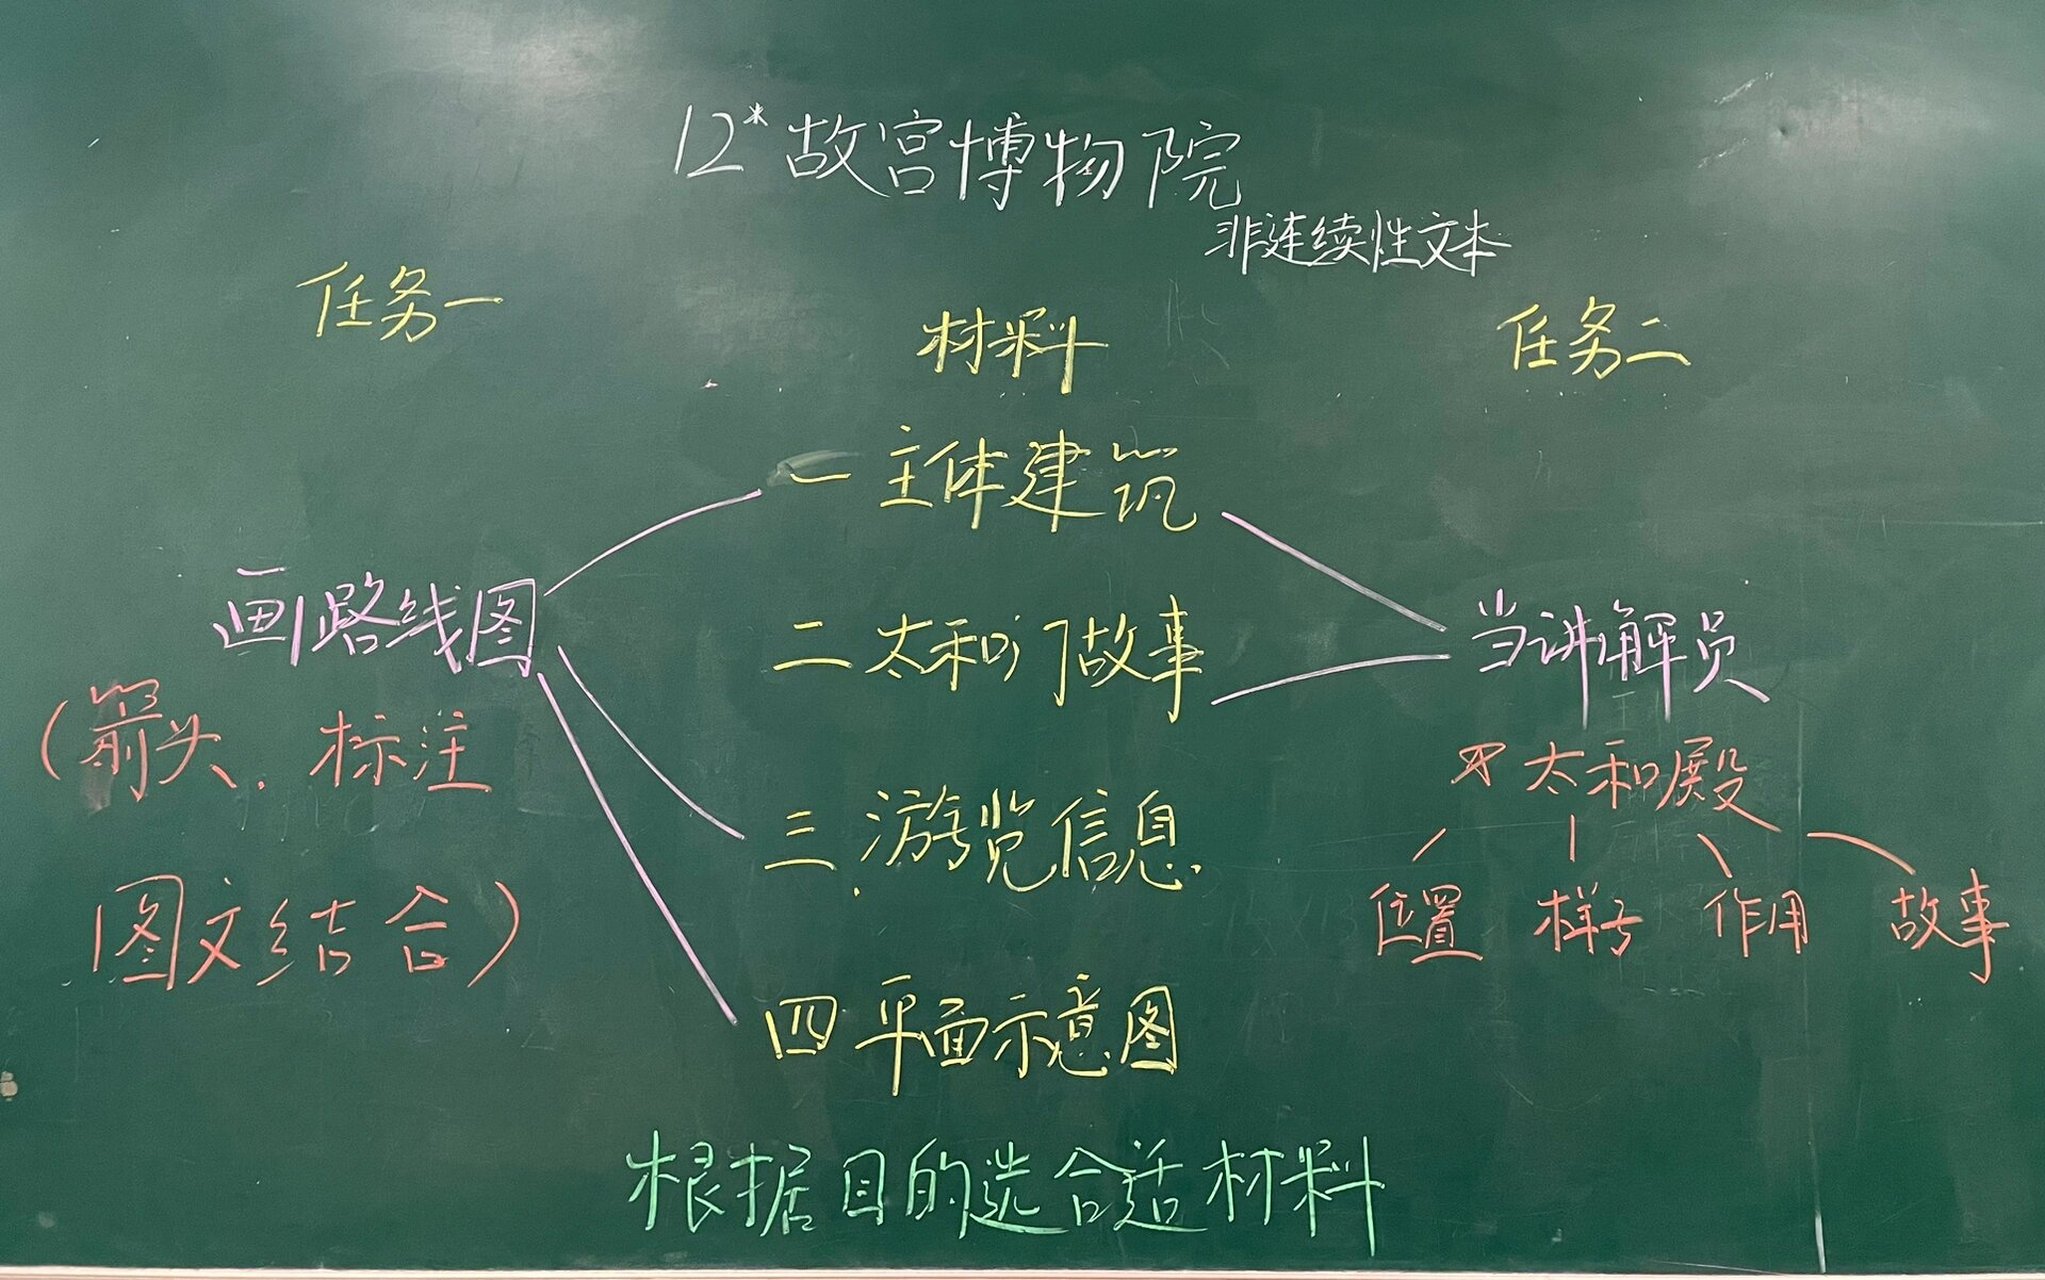 12*故宫博物院
非连续性文本
任务一
材料
任务二
一 主体建筑
二 太和门故事
三.游览信息.
四 平面示意图
画路线图
(箭头.标注
图文结合)
当讲解员
太和殿
位置 样子 作用 故事
根据目的选合适材料